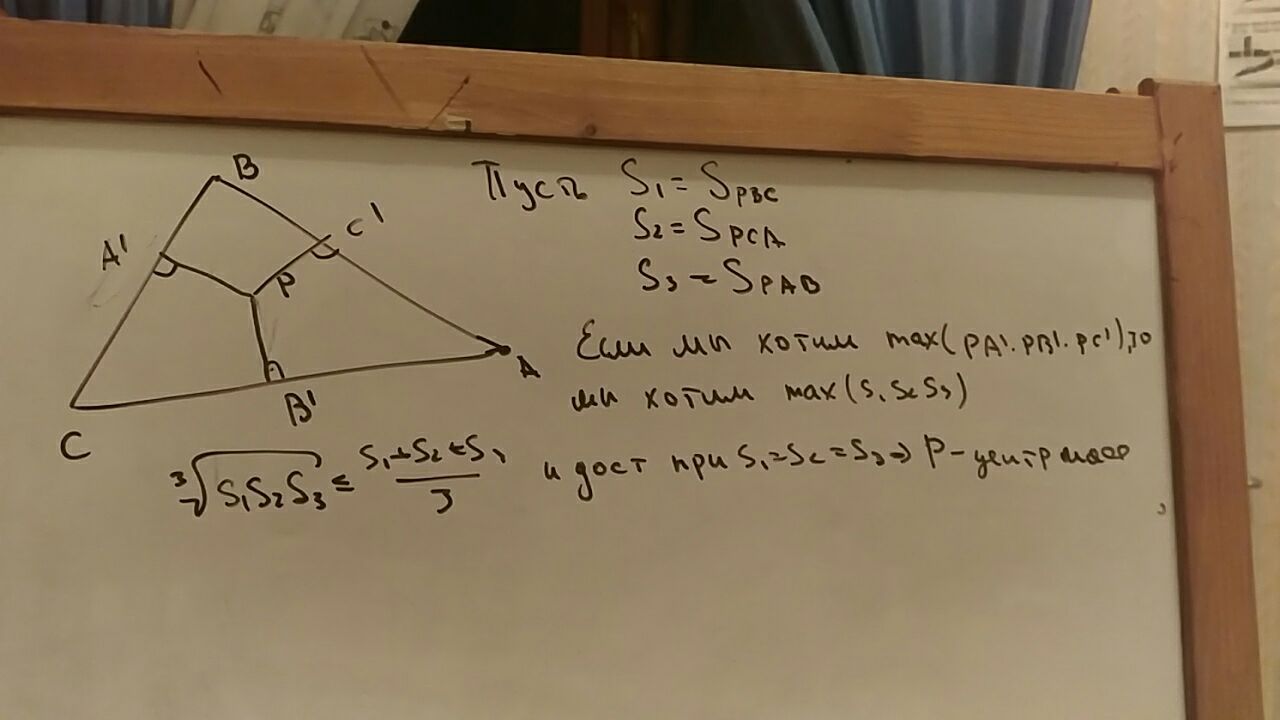 B
Пусть S₁ = S_PBC
C'
S₂ = S_PCA
A'
P
S₃ = S_PAB
Если мы хотим max(PA'·PB'·PC'), то
A
B'
мы хотим max(S₁S₂S₃)
C
∛(S₁S₂S₃) ≤ (S₁+S₂+S₃)/3 и дост при S₁=S₂=S₃ ⇒ P - центр масс